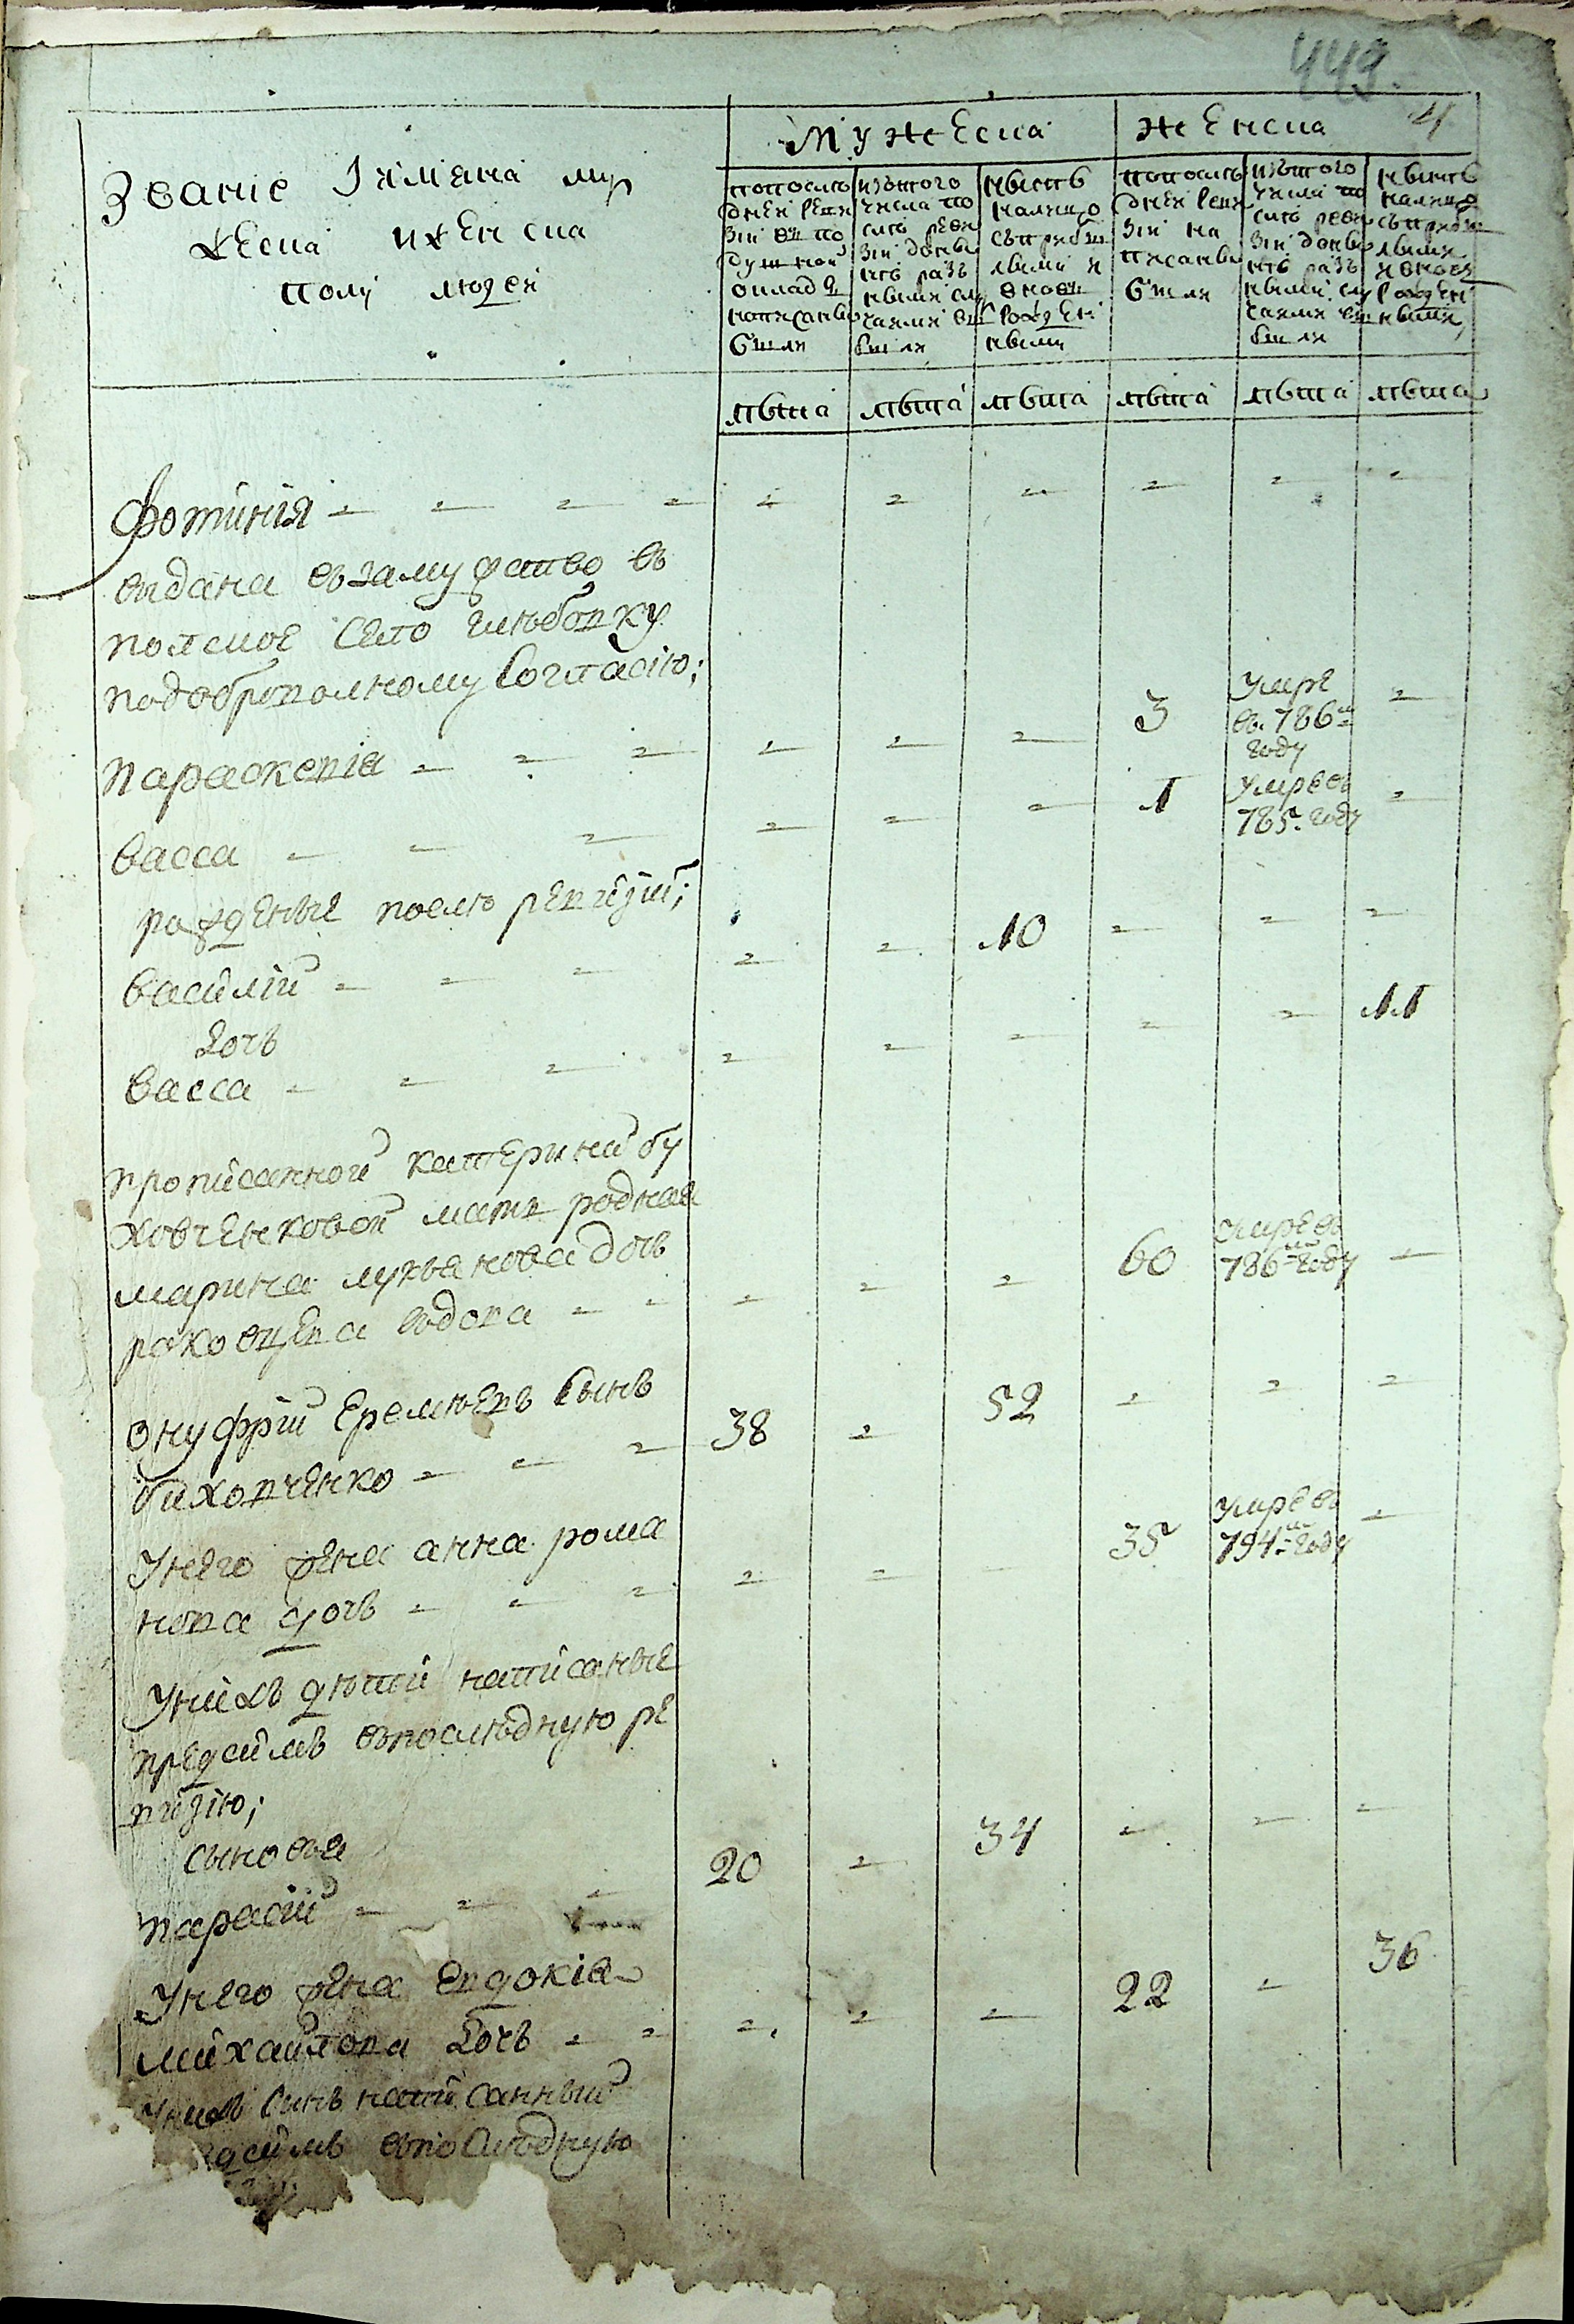 449.
4
Званіе Іимяна муж
жеска иженска
полу людей
мужеска
женска
попослѣ
дней реви
зіи въ по
душной
окладъ
написанью
было
изътого
числа по
слѣ реви
зіи до ны
нѣ разъ
ными слу
чаями вы
было
нынѣ
налицо
съприбы
лыми и
вновь
рожден
ными
попослѣ
дней реви
зіи на
писаны
было
изътого
числа по
слѣ реви
зіи доны
нѣ разъ
ными слу
чаями вы
было
нынѣ
налицо
съприбы
лыми
ивновь
рожден
ными
лѣта лѣта лѣта лѣта лѣта лѣта
Фотинія
выдана взамужство въ
полское село
подоброволному согласію;
Параскевія 3 умре въ 786м году
Васса 1 умре въ 785. году
рожденые послѣ ревизіи;
Василій 10
Дочь
Васса 11
прописанной катерини бу
ховченковой мать родная
марина лукьянова дочь
раковцева вдова 60 умре въ 786м году
Онуфрій Еремѣевъ сынъ
бухопченко 38 52
Унего жена анна рома
нова дочь 35 умре въ 794м году
Унихъ дѣти написаные
предсимъ впослѣдную ре
визію;
сыновья
Тарасій 20 34
Унего жена Евдокія
михайлова дочь 22 36
Унихъ синъ написанный
едсимъ впослѣдную